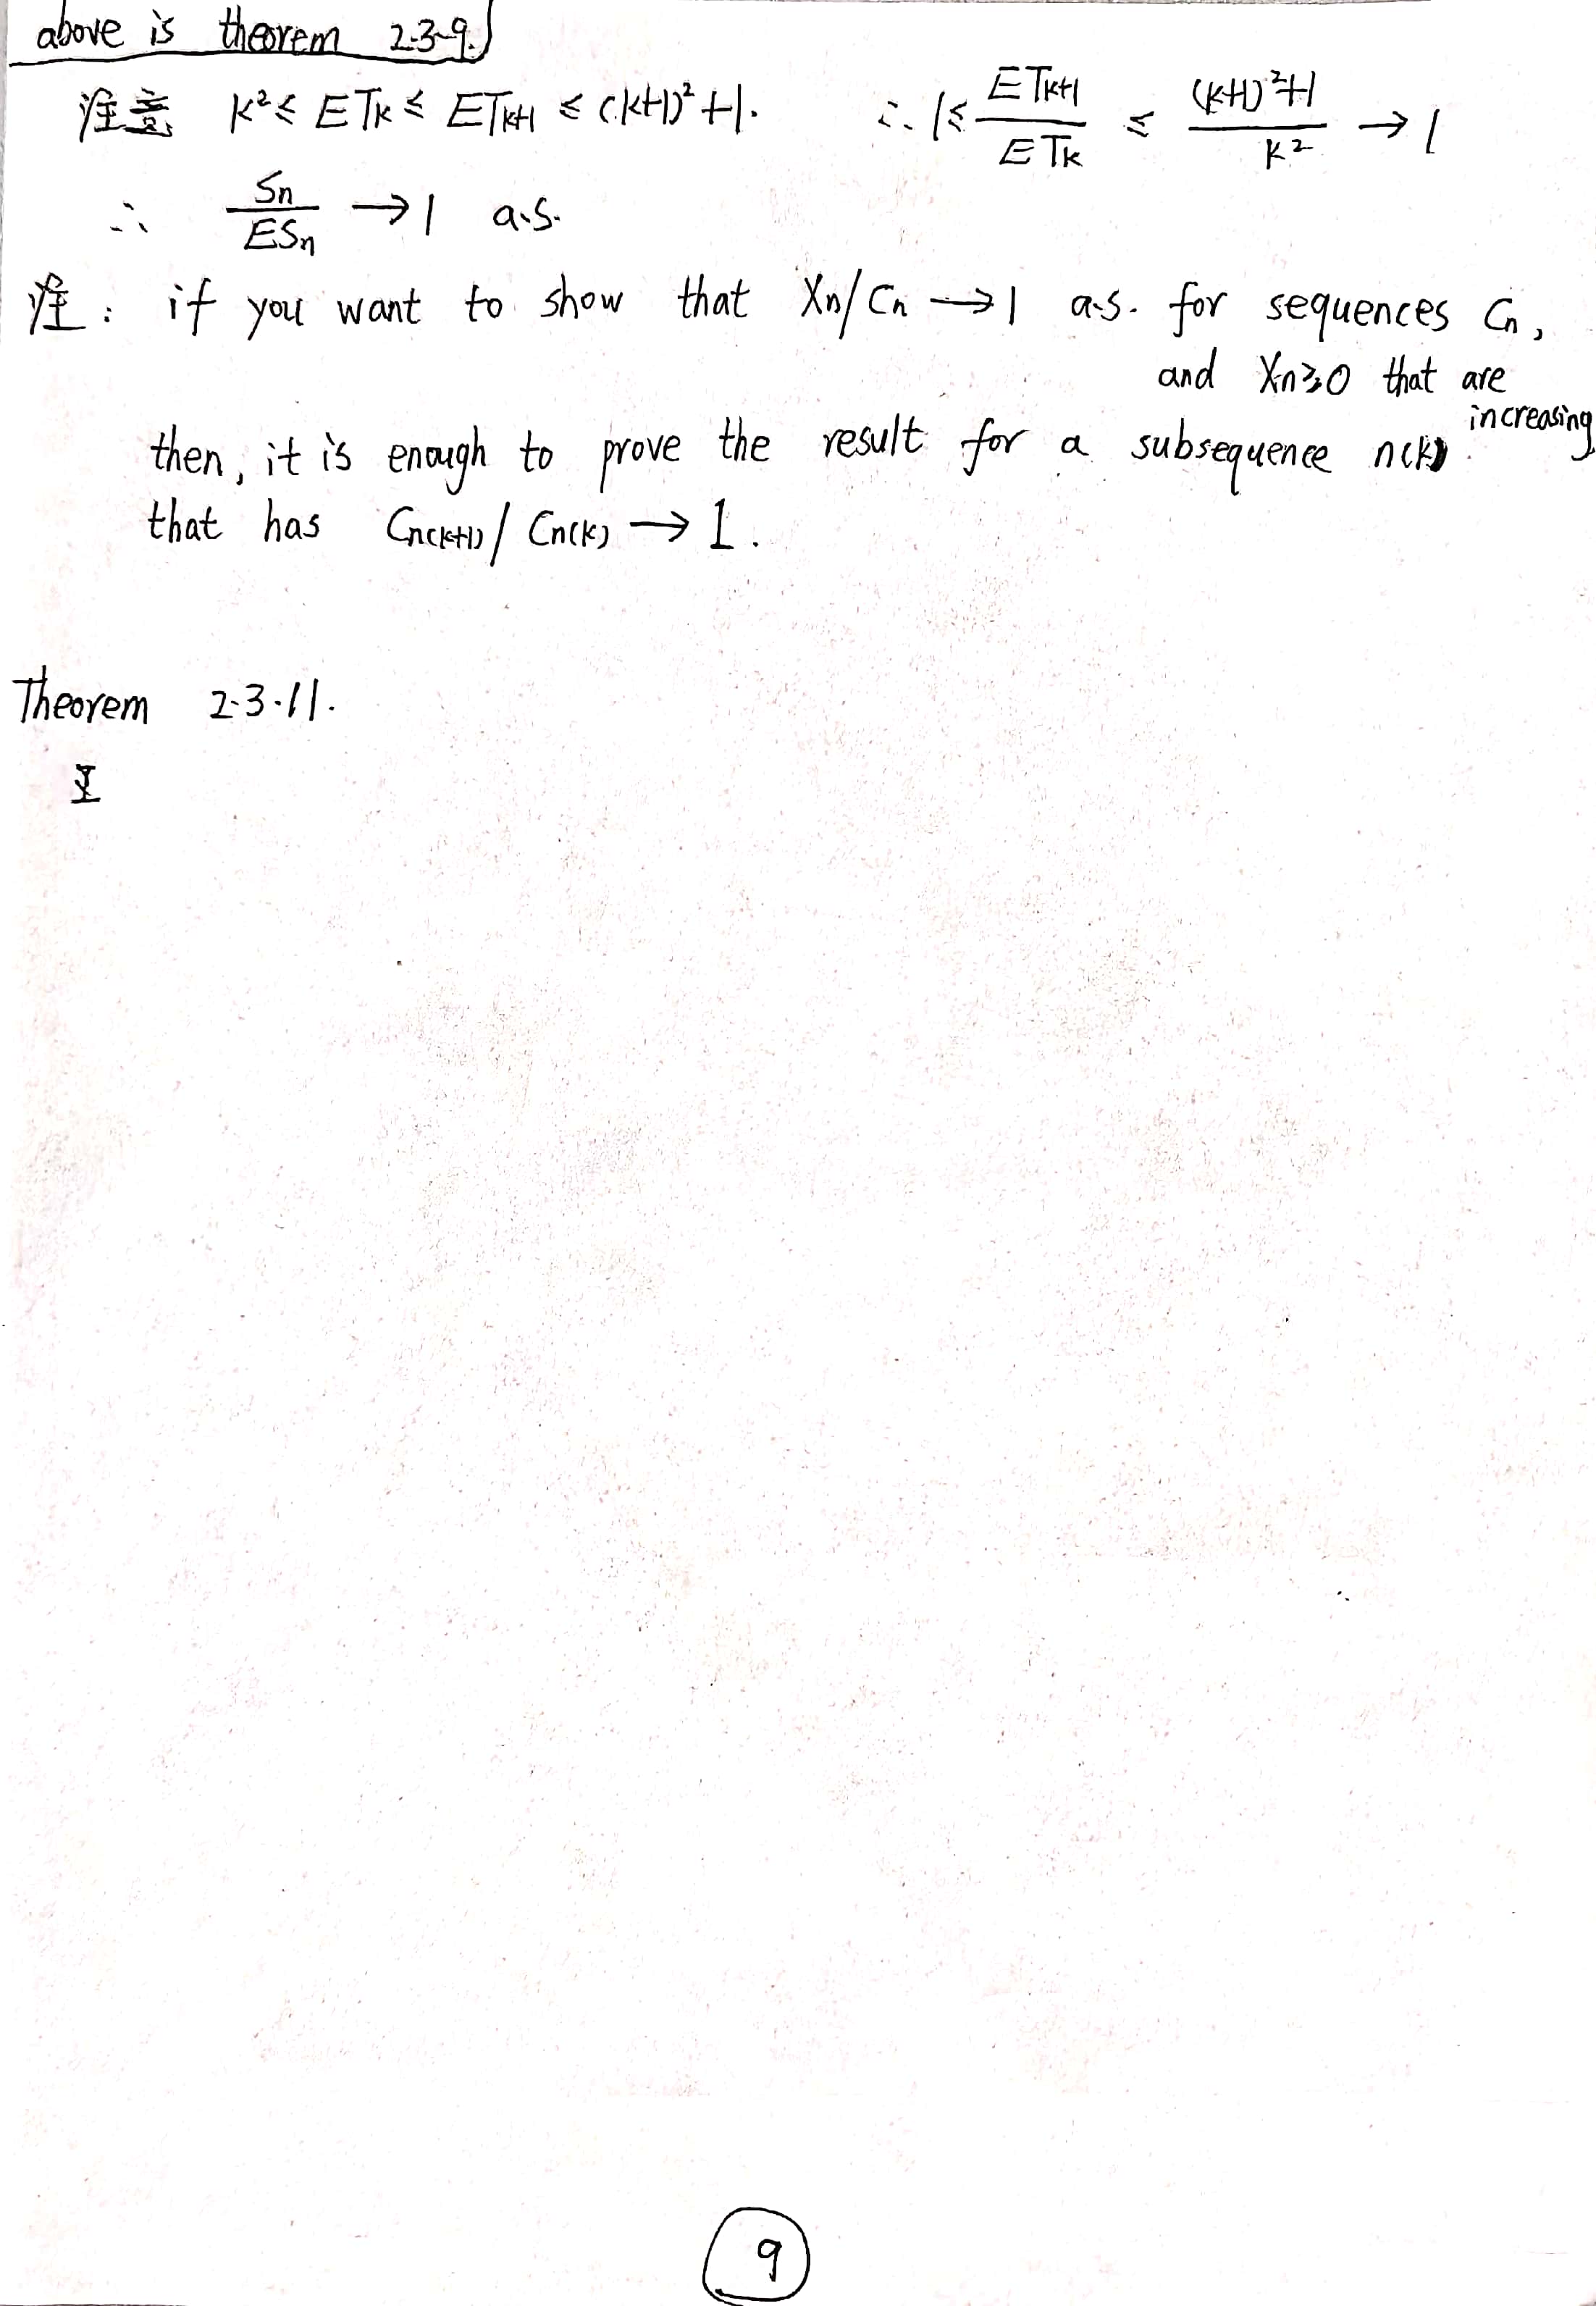 above is theorem 2.3.9.
注意 K² ≤ ETk ≤ ETk+1 ≤ (k+1)²+1. ∴ 1 ≤ ETk+1 / ETk ≤ (k+1)²+1 / k² → 1
∴ Sn / ESn → 1 a.s.
注: if you want to show that Xn/Cn → 1 a.s. for sequences Cn,
and Xn≥0 that are
increasing
then, it is enough to prove the result for a subsequence n(k)
that has Cn(k+1) / Cn(k) → 1.
Theorem 2.3.11.
9